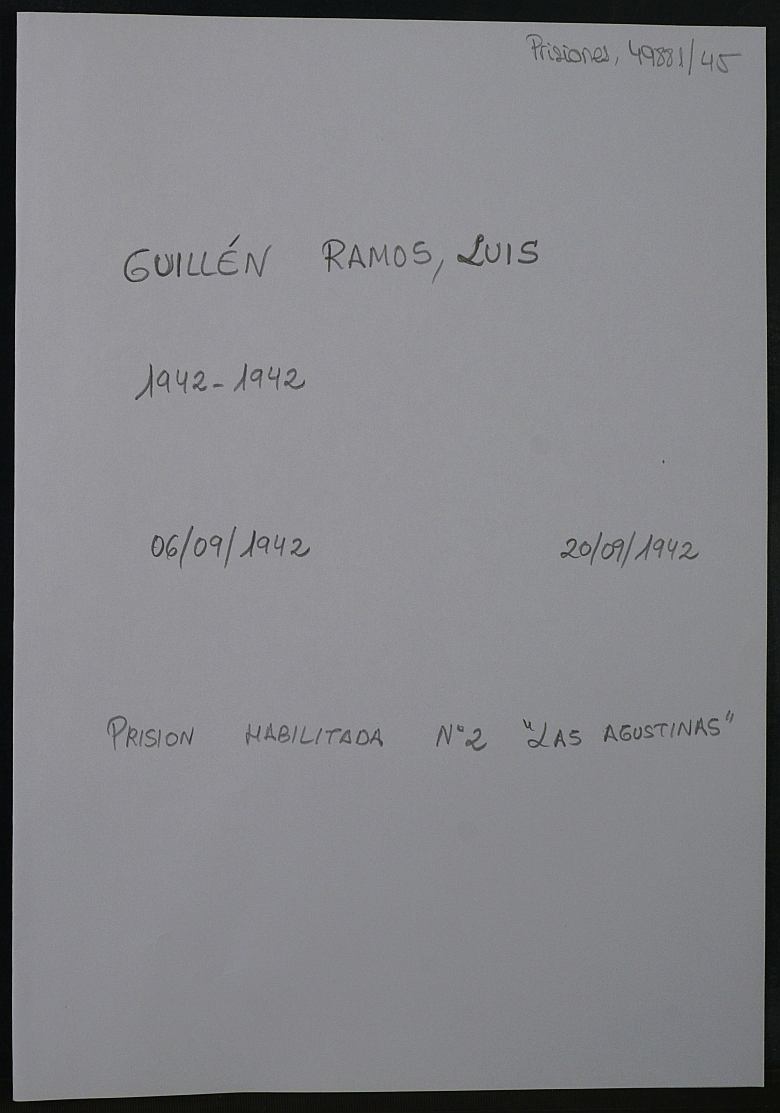 Prisiones, 49881/45
GUILLÉN RAMOS, LUIS
1942-1942
06/09/1942 20/09/1942
PRISION HABILITADA Nº2 "LAS AGUSTINAS"